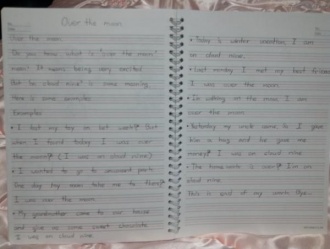 Over the moon
Over the moon.
Do you know what is "over the moon"
mean? It means being very excited
But "on cloud nine" is same meaning
Here is some examples.
Examples:
• I lost my toy on last week? But
when I found today I was over
the moon? (I was on cloud nine)
• I wanted to go to amusment park.
One day my mom take me to there?
I was over the moon.
• My grandmother come to our house
and give us some sweet chocolate
I was on cloud nine.
• Today is winter vacation, I am
on cloud nine.
• Last monday I met my best friend
I was over the moon.
• I'm walking at the moon I am
over the moon.
• Yesterday my uncle come to I gave
him a hug and he gave me
money? I was on cloud nine
• The tomorrow is I'm on
cloud nine.
This is end of my work. Bye...